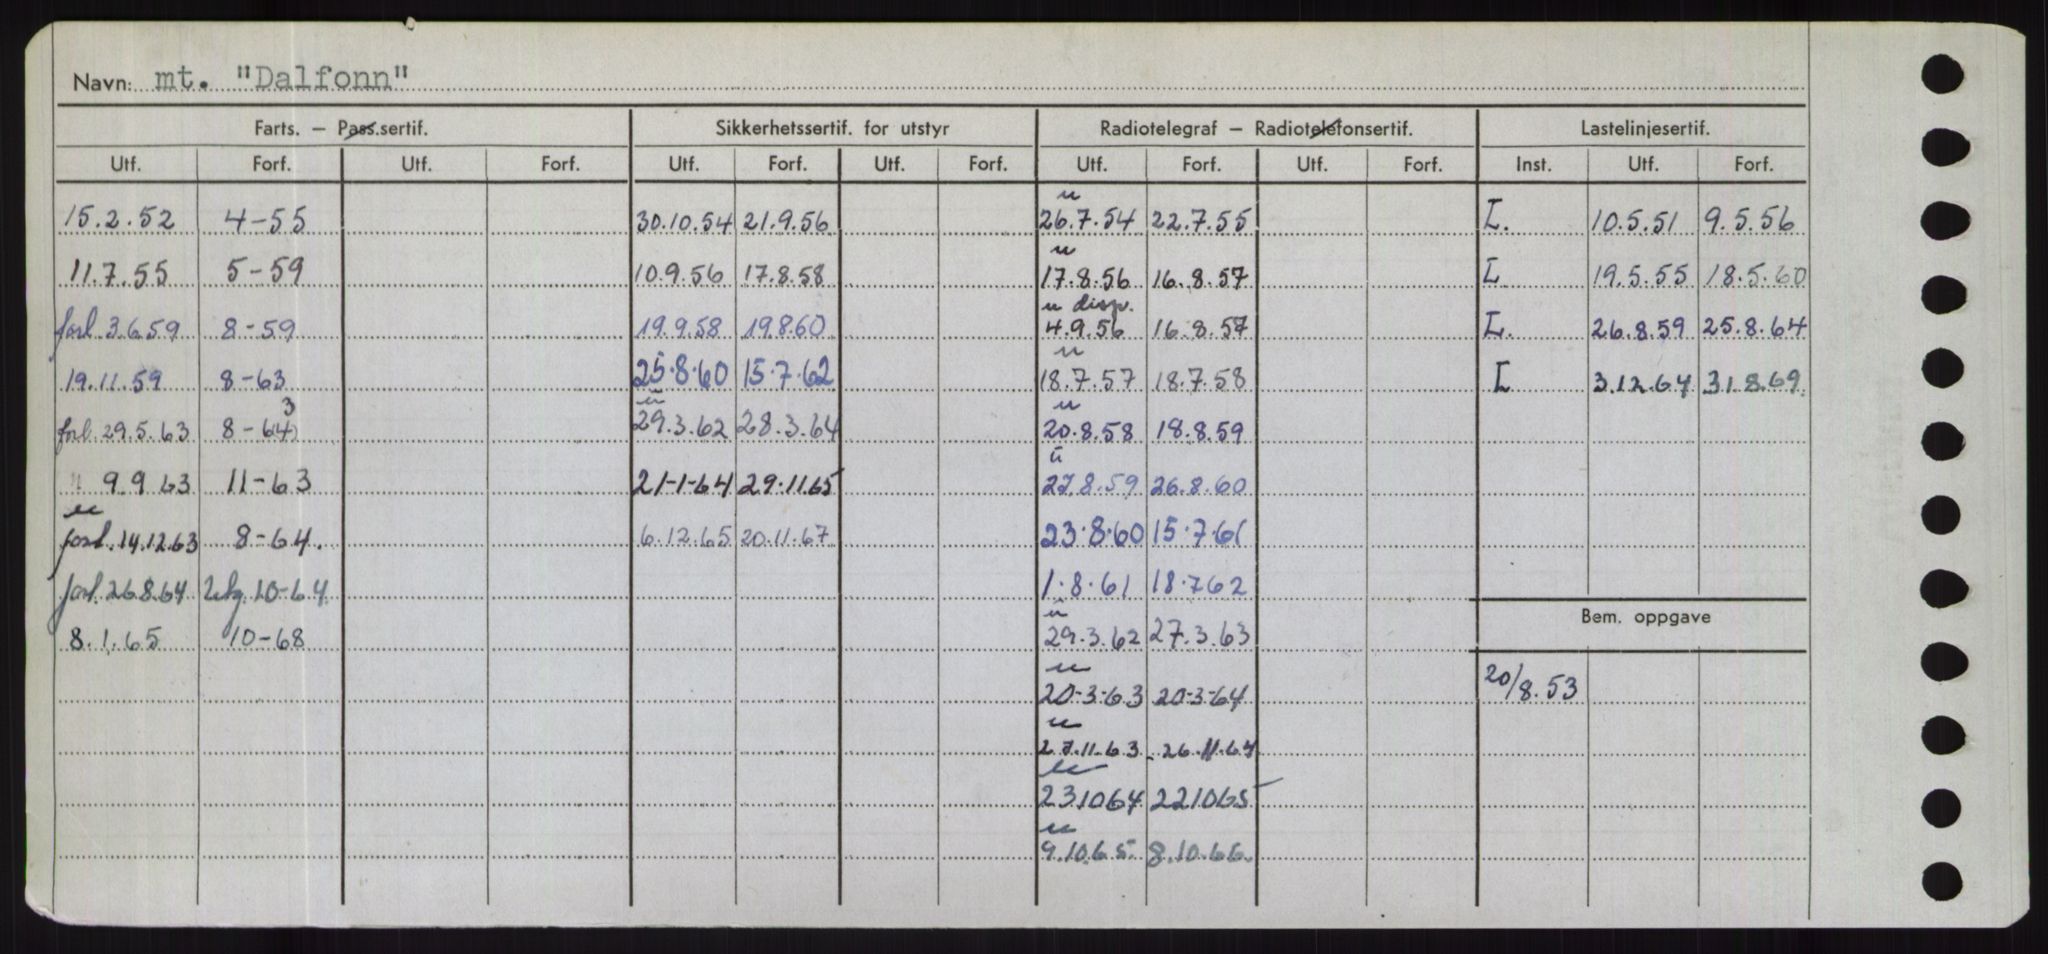 Navn: mt. "Dalfonn"
Farts. – Pass.sertif. Sikkerhetssertif. for utstyr Radiotelegraf – Radiotelefonsertif. Lastelinjesertif.
Utf. Forf. Utf. Forf. Utf. Forf. Utf. Forf. Utf. Forf. Utf. Forf. Inst. Utf. Forf.
u
15.2.52 4-55 30.10.54 21.9.56 26.7.54 22.7.55 L. 10.5.51 9.5.56
u
11.7.55 5-59 10.9.56 17.8.58 17.8.56 16.8.57 L 19.5.55 18.5.60
u disp.
forl 3.6.59 8-59 19.9.58 19.8.60 4.9.56 16.8.57 L. 26.8.59 25.8.64
u
19.11.59 8-63 25.8.60 15.7.62 18.7.57 18.7.58 L 3.12.64 31.8.69
3 u u
forl. 29.5.63 8-64 29.3.62 28.3.64 20.8.58 18.8.59
u
" 9.9.63 11-63 21-1-64 29.11.65 27.8.59 26.8.60
u
forl. 14.12.63 8-64. 6.12.65 20.11.67 23.8.60 15.7.61
forl. 26.8.64 10-64 1.8.61 18.7.62
u
8.1.65 10-68 29.3.62 27.3.63
Bem. oppgave
u
20-3-63 20-3-64 20/8.53
u
27.11.63 26.11.64
u
231064 221065
u
9.10.65 8.10.66